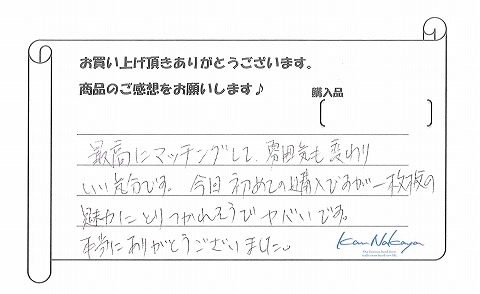 お買い上げ頂きありがとうございます。
商品のご感想をお願いします♪
購入品
最高にマッチングして、雰囲気も変わり
いい気分です。今日初めての購入ですが一枚板の
魅力にとりつかれそうでヤバいです。
本当にありがとうございました。
Kan Nakaya